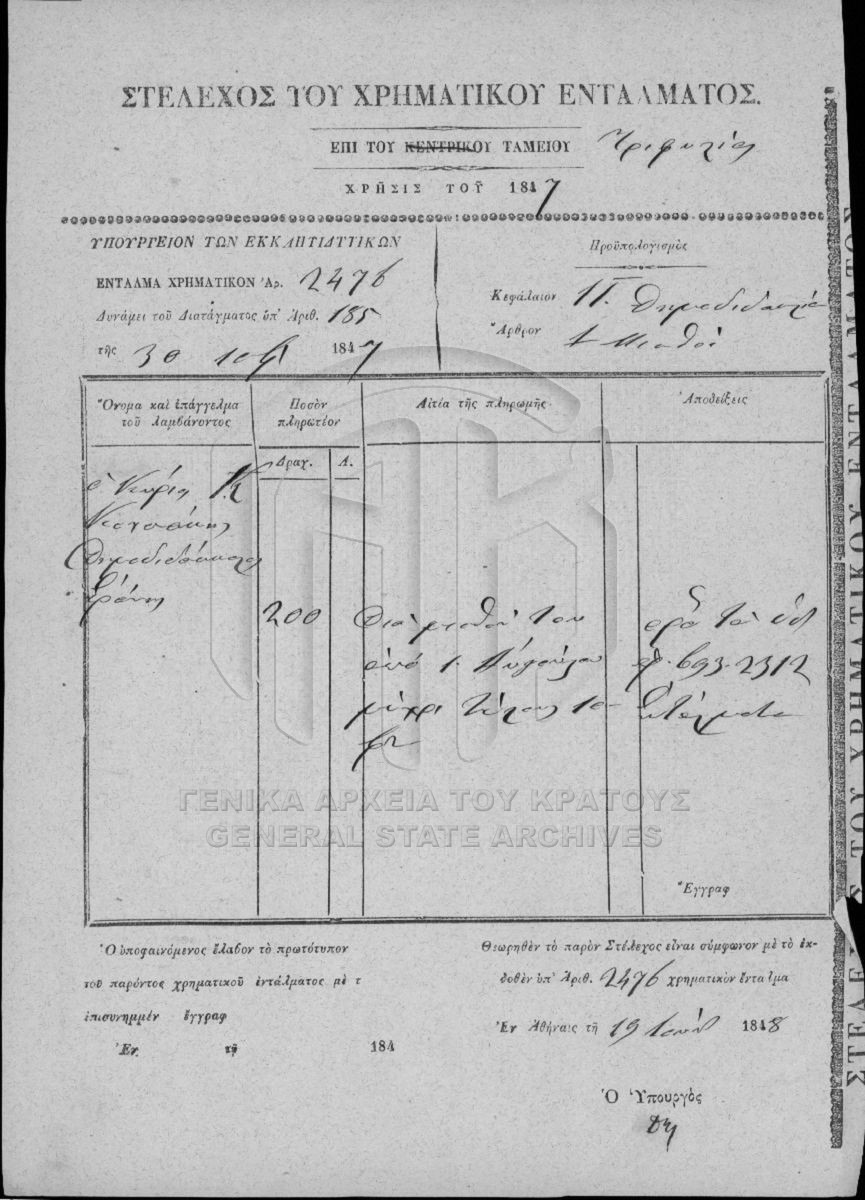 ΣΤΕΛΕΧΟΣ ΤΟΥ ΧΡΗΜΑΤΙΚΟΥ ΕΝΤΑΛΜΑΤΟΣ.
ΕΠΙ ΤΟΥ ΚΕΝΤΡΙΚΟΥ ΤΑΜΕΙΟΥ Τριφυλίας
ΧΡΗΣΙΣ ΤΟΥ 1847
ΥΠΟΥΡΓΕΙΟΝ ΤΩΝ ΕΚΚΛΗΤΙΑΤΤΙΚΩΝ
ΕΝΤΑΛΜΑ ΧΡΗΜΑΤΙΚΟΝ Ἀρ. 2476
Δυνάμει τοῦ Διατάγματος ὑπ' Ἀριθ. 185
τῆς 30 10βρ 1847
Προϋπολογισμὸς
Κεφάλαιον ΙΓ. Δημοδιδασκαλεῖα
Ἄρθρον 1 Μισθοὶ
Ὄνομα καὶ ἐπάγγελμα τοῦ λαμβάνοντος
Ποσὸν πληρωτέον
Δραχ. Λ.
Αἰτία τῆς πληρωμῆς
Ἀποδείξεις
Δημοδιδάσκαλος
200
Διὰ μισθόν του
ἀπὸ 1. Αὐγούστου
μέχρι τέλους 10
βρ
ὅρα τὸ ὑπ
ἀρ. 693. 2312
Ἔγγραφ
ΓΕΝΙΚΑ ΑΡΧΕΙΑ ΤΟΥ ΚΡΑΤΟΥΣ
GENERAL STATE ARCHIVES
Ὁ ὑποφαινόμενος ἔλαβον τὸ πρωτότυπον
τοῦ παρόντος χρηματικοῦ ἐντάλματος μὲ τ
ἐπισυνημμέν ἔγγραφ
Ἐν τῇ 184
Θεωρηθὲν τὸ παρὸν Στέλεχος εἶναι σύμφωνον μὲ τὸ ἐκ-
δοθὲν ὑπ' Ἀριθ. 2476 χρηματικὸν ἔνταλμα
Ἐν Ἀθήναις τῇ 19 1848
Ὁ Ὑπουργὸς
ΣΤΕΛΕΧΟΣ ΤΟΥ ΧΡΗΜΑΤΙΚΟΥ ΕΝΤΑΛΜΑΤΟΣ